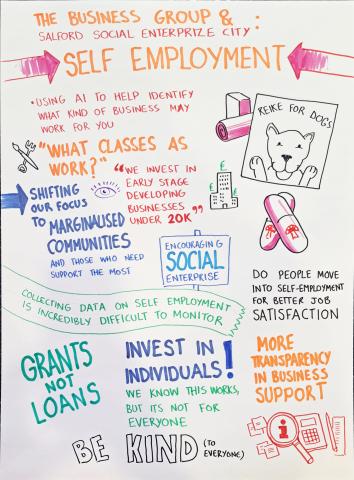 THE BUSINESS GROUP & :
SALFORD SOCIAL ENTERPRIZE CITY
SELF EMPLOYMENT
• USING AI TO HELP IDENTIFY
WHAT KIND OF BUSINESS MAY
WORK FOR YOU
REIKE FOR DOGS
"WHAT CLASSES AS
WORK?"
"WE INVEST IN
EARLY STAGE
DEVELOPING
BUSINESSES
UNDER 20K"
£
£
£
SHIFTING
OUR FOCUS
TO MARGINALISED
COMMUNITIES
AND THOSE WHO NEED
SUPPORT THE MOST
ENCOURAGING
SOCIAL
ENTERPRISE
DO PEOPLE MOVE
INTO SELF-EMPLOYMENT
FOR BETTER JOB
SATISFACTION
COLLECTING DATA ON SELF EMPLOYMENT
IS INCREDIBLY DIFFICULT TO MONITOR
GRANTS
NOT
LOANS
INVEST IN
INDIVIDUALS!
WE KNOW THIS WORKS,
BUT ITS NOT FOR
EVERYONE
MORE
TRANSPARENCY
IN BUSINESS
SUPPORT
i
BE KIND (TO
EVERYONE)